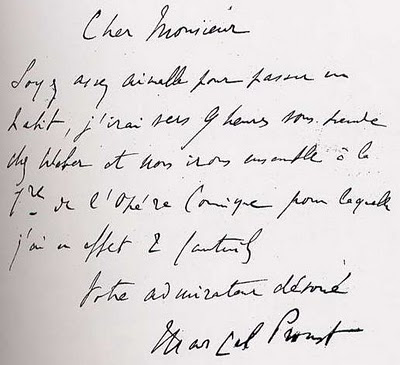 Cher Monsieur
Soyez assez aimable pour passer un
habit, j'irai vers 9 heures vous prendre
chez Weber et nous irons ensemble à la
1re de l'Opéra Comique pour laquelle
j'ai en effet 2 fauteuils
Votre admirateur dévoué
Marcel Proust